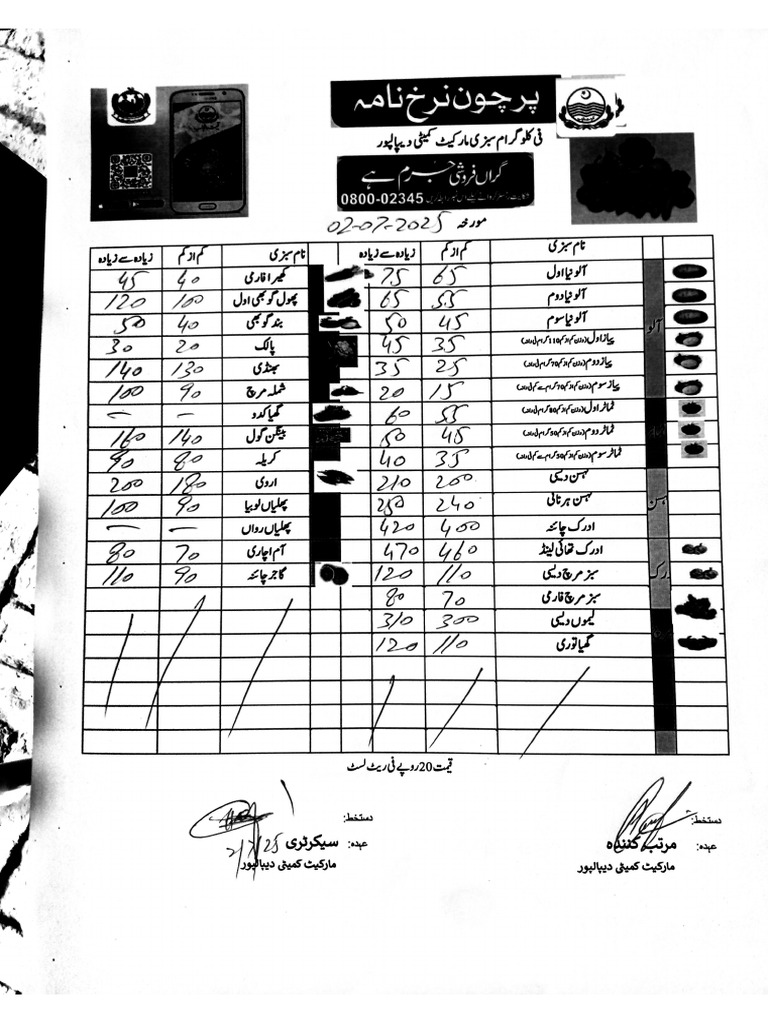 پرچون نرخ نامہ
فی کلو گرام سبزی مارکیٹ کمیٹی دیپالپور
گراں فروشی جرم ہے
0800-02345
مورخہ 02-07-2025
نام سبزی کم از کم زیادہ سے زیادہ نام سبزی کم از کم زیادہ سے زیادہ
آلو نیا اول 65 75 کھیرا فارمی 40 45
آلو نیا دوم 55 65 پھول گوبھی اول 100 120
آلو نیا سوم 45 50 بند گوبھی 40 50
پیاز اول 35 45 پالک 20 30
پیاز دوم 25 35 بھنڈی 130 140
پیاز سوم 15 20 شملہ مرچ 90 100
ٹماٹر اول 55 60 گھیا کدو - -
ٹماٹر دوم 45 50 بینگن گول 140 160
ٹماٹر سوم 35 40 کریلہ 80 90
لہسن دیسی 200 210 اروی 180 200
لہسن ہرنائی 240 250 پھلیاں لوبیا 90 100
ادرک چائنہ 400 420 پھلیاں رواں - -
ادرک تھائی لینڈ 460 470 آم اچاری 70 80
سبز مرچ دیسی 110 120 گاجر چائنہ 90 110
سبز مرچ فارمی 70 80
لیموں دیسی 300 310
گھیا توری 110 120
قیمت 20 روپے فی ریٹ لسٹ
دستخط: دستخط:
عہدہ: مرتب کنندہ عہدہ: سیکرٹری
2/7/25
مارکیٹ کمیٹی دیپالپور مارکیٹ کمیٹی دیپالپور